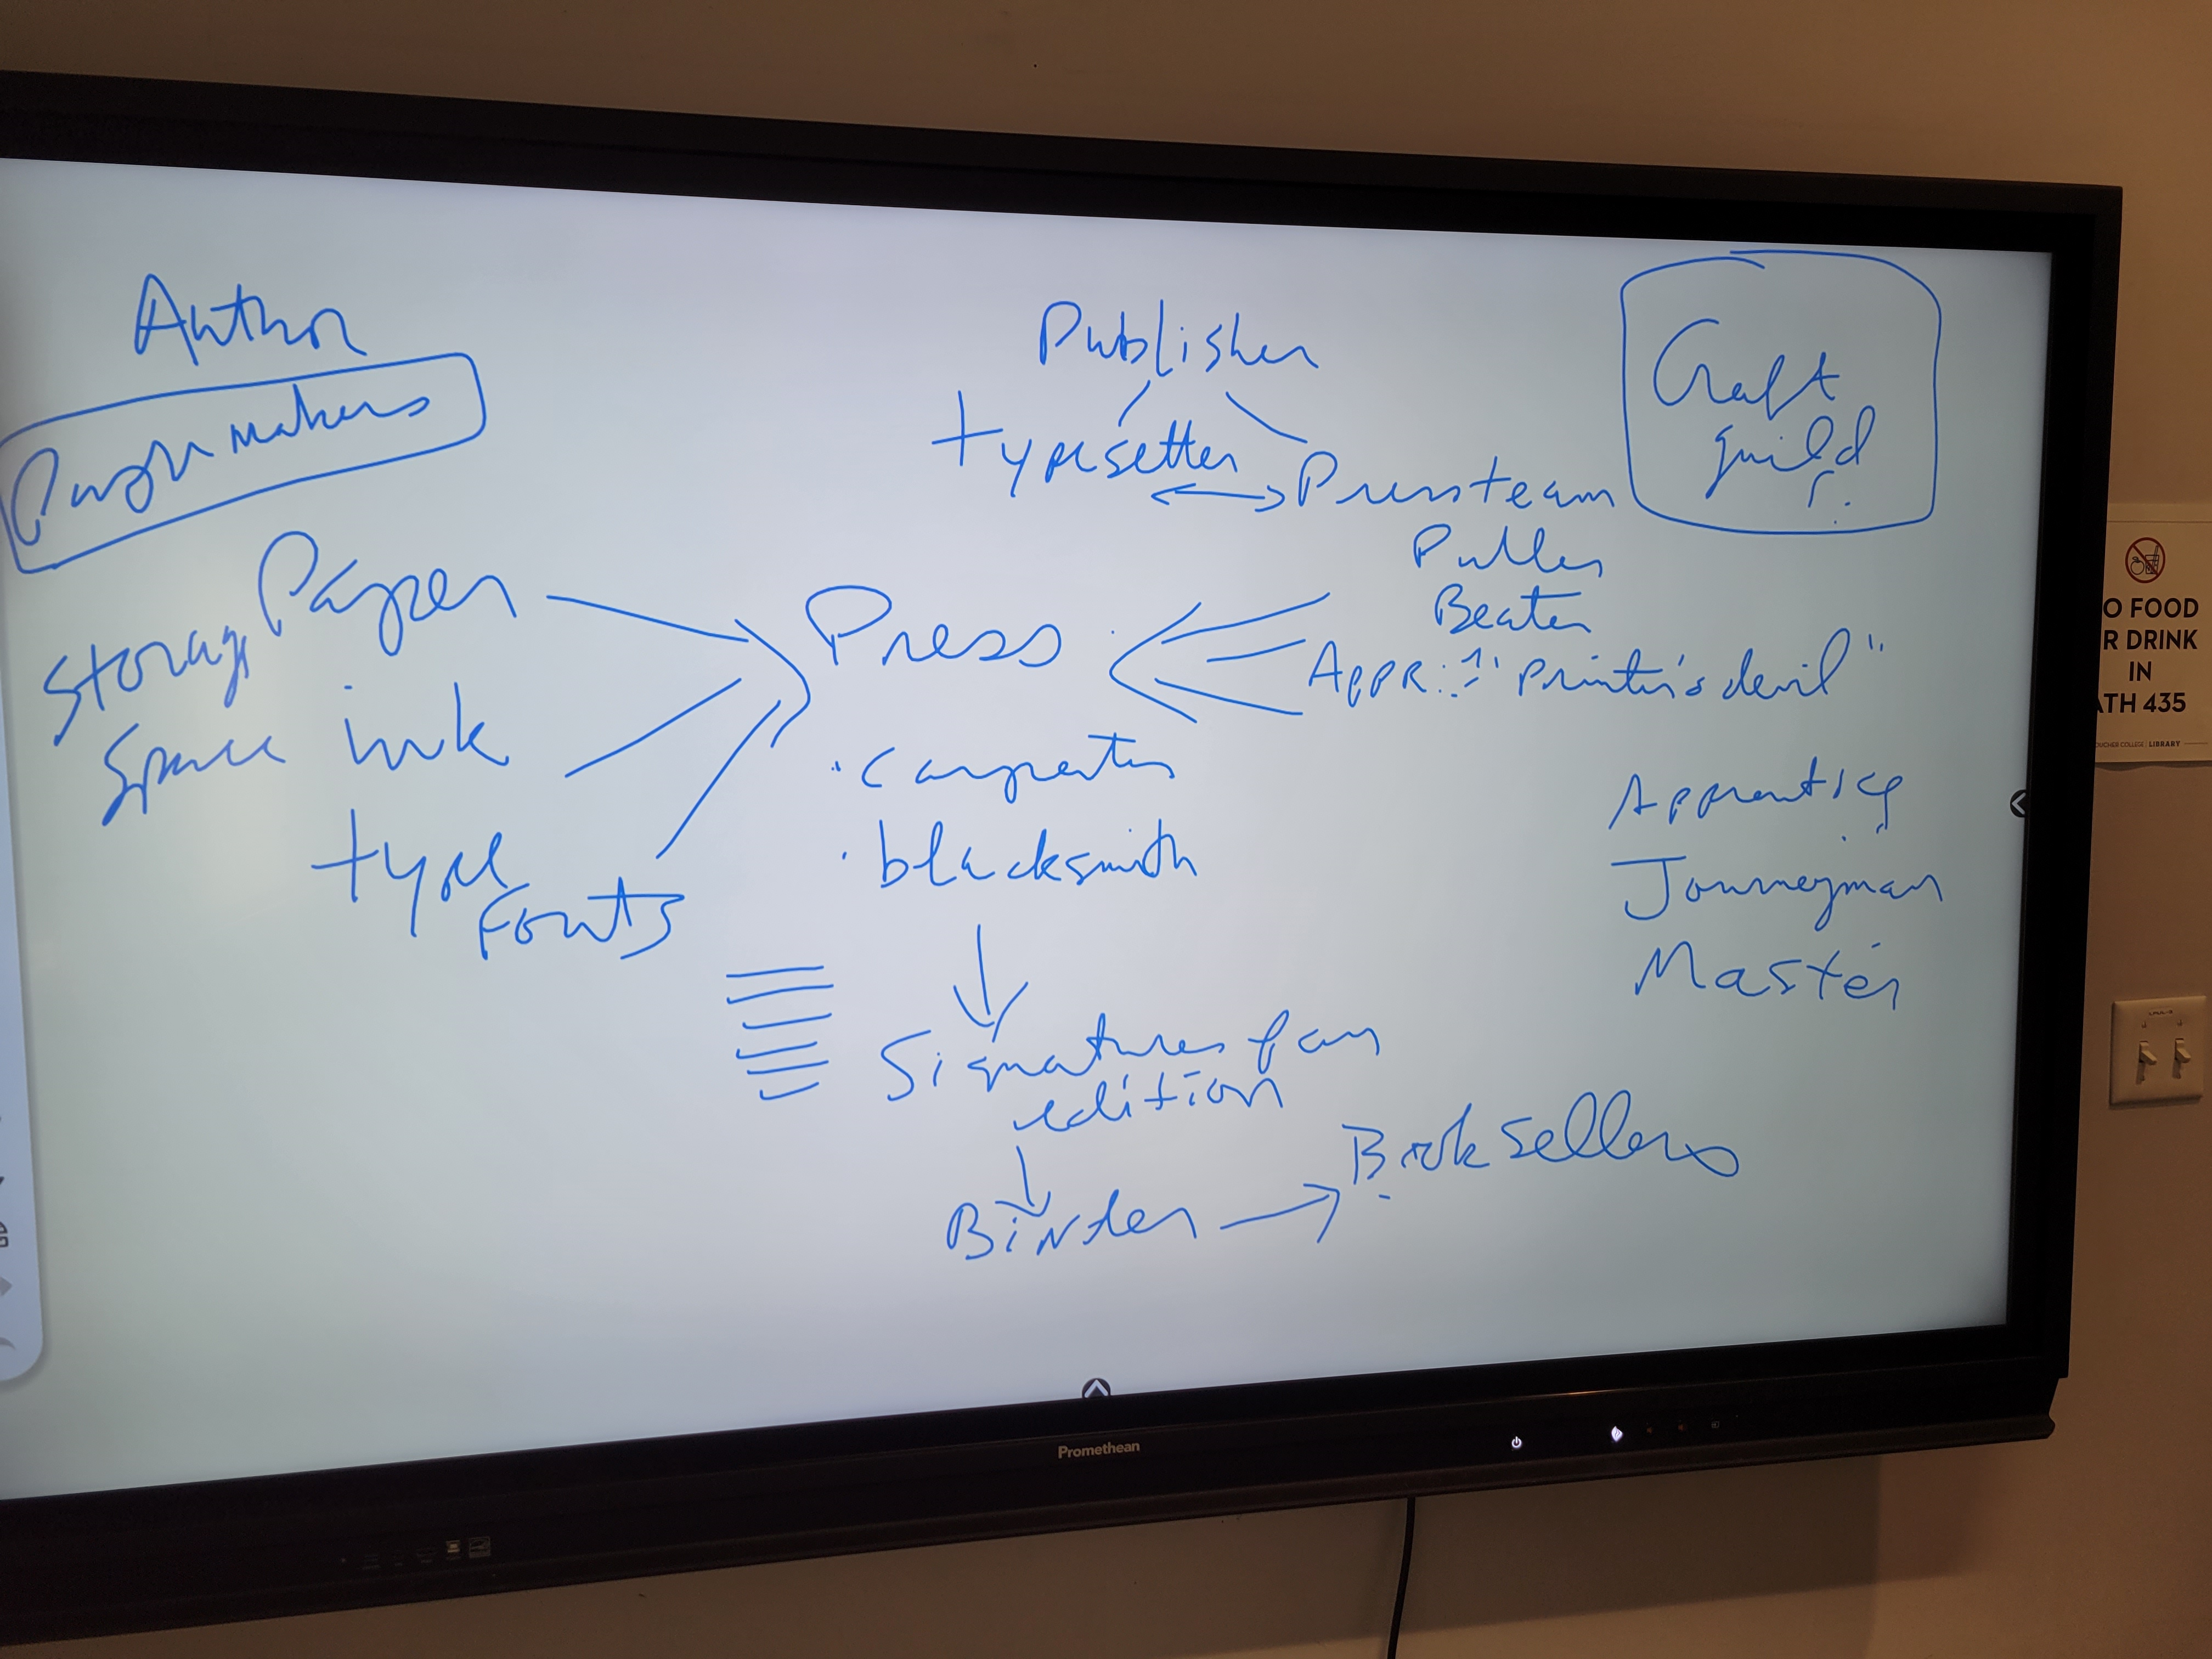 Author
Publisher
Craft
guild
typesetter
Press team
Puller
Beater
Appr: "Printer's devil"
Paper
Storage
Space
ink
type
Fonts
Press
· carpenter
· blacksmith
Apprentice
Journeyman
Master
Signatures for an
edition
Binder
Booksellers
O FOOD
R DRINK
IN
ATH 435
OUCHER COLLEGE | LIBRARY
Promethean